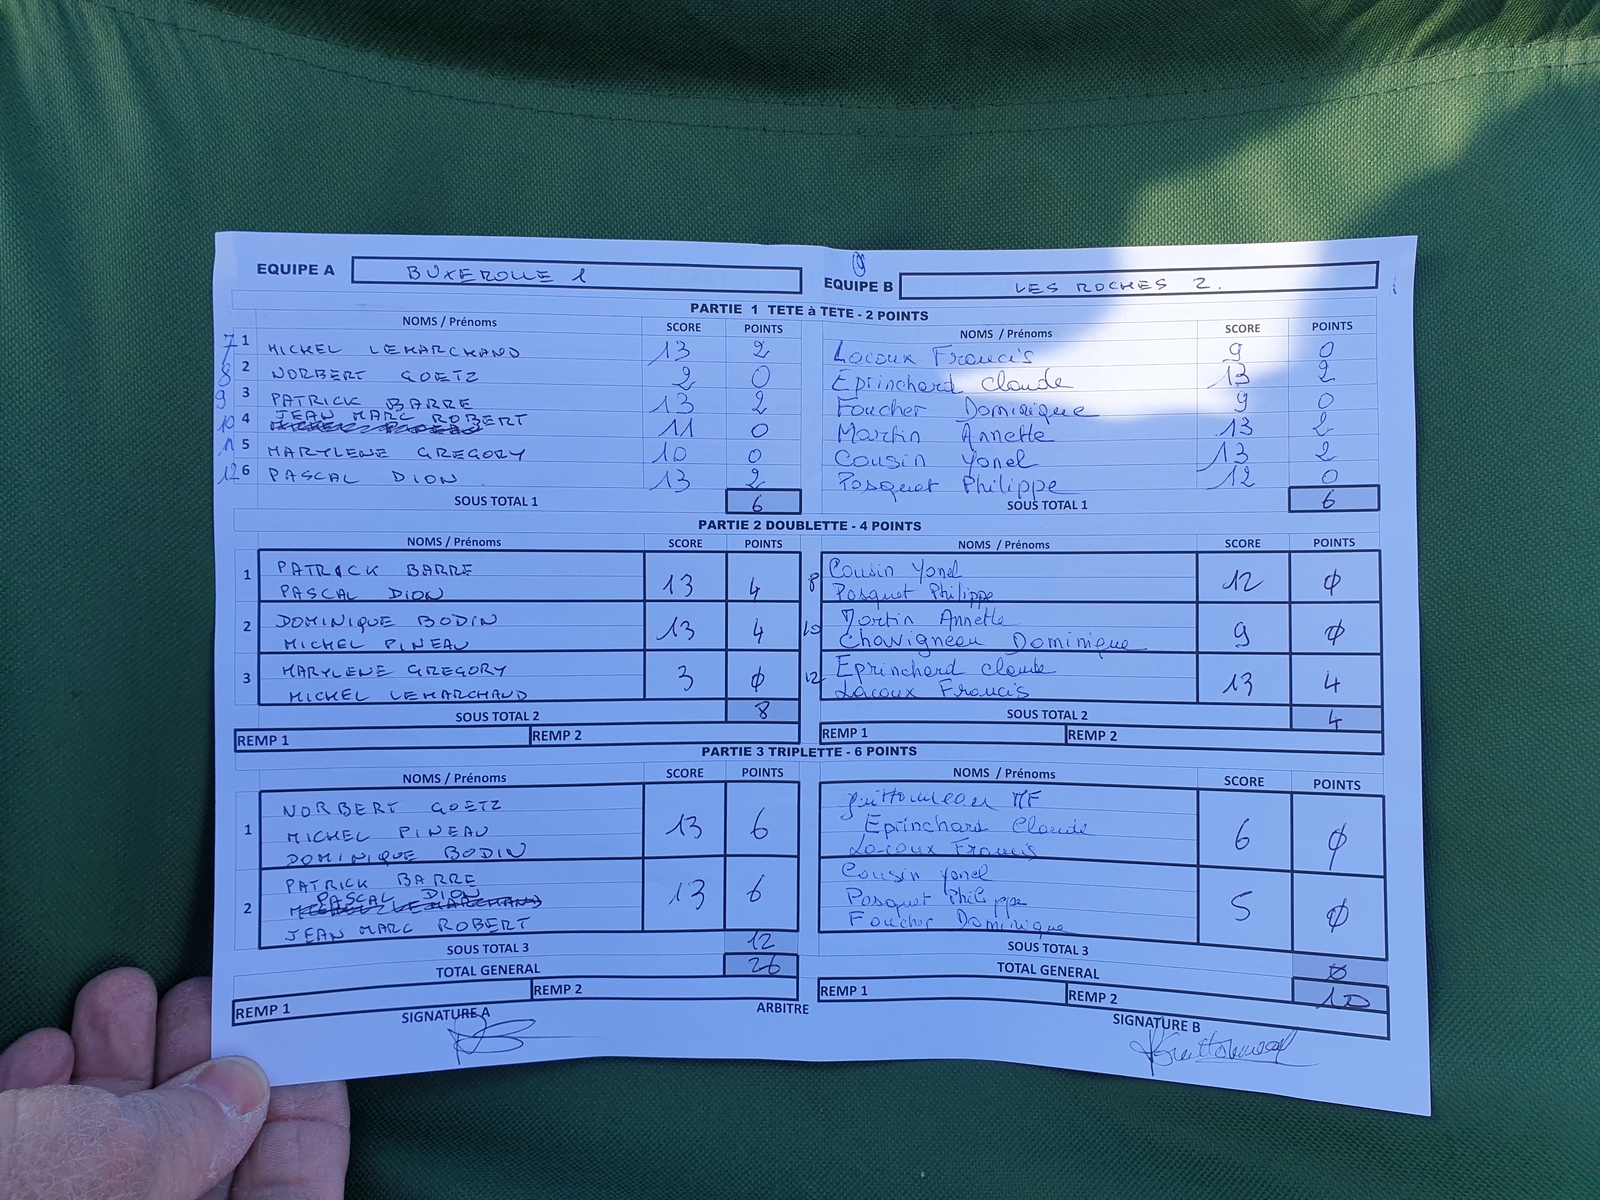 EQUIPE A BUXEROLLE 1 EQUIPE B LES ROCHES 2.
PARTIE 1 TETE à TETE - 2 POINTS
NOMS / Prénoms SCORE POINTS NOMS / Prénoms SCORE POINTS
7 1 MICHEL LEMARCHAND 13 2 Lacoux Francis 9 0
8 2 NORBERT GOETZ 2 0 Eprinchard Claude 13 2
9 3 PATRICK BARRE 13 2 Foucher Dominique 9 0
10 4 JEAN MARC ROBERT 11 0 Martin Annette 13 2
11 5 MARYLENE GREGORY 10 0 Cousin Yonel 13 2
12 6 PASCAL DION 13 2 Pasquet Philippe 12 0
SOUS TOTAL 1 6 SOUS TOTAL 1 6
PARTIE 2 DOUBLETTE - 4 POINTS
NOMS / Prénoms SCORE POINTS NOMS / Prénoms SCORE POINTS
1 PATRICK BARRE 13 4 8 Cousin Yonel 12 0
PASCAL DION Pasquet Philippe
2 DOMINIQUE BODIN 13 4 10 Martin Annette 9 0
MICHEL PINEAU Chavigneau Dominique
3 MARYLENE GREGORY 3 0 12 Eprinchard Claude 13 4
MICHEL LEMARCHAND Lacoux Francis
SOUS TOTAL 2 8 SOUS TOTAL 2 4
REMP 1 REMP 2 REMP 1 REMP 2
PARTIE 3 TRIPLETTE - 6 POINTS
NOMS / Prénoms SCORE POINTS NOMS / Prénoms SCORE POINTS
NORBERT GOETZ MF
1 MICHEL PINEAU 13 6 Eprinchard Claude 6 0
DOMINIQUE BODIN Lacoux Francis
PATRICK BARRE Cousin Yonel
2 PASCAL DION 13 6 Pasquet Philippe 5 0
MICHEL LEMARCHAND
JEAN MARC ROBERT Foucher Dominique
SOUS TOTAL 3 12 SOUS TOTAL 3 0
TOTAL GENERAL 26 TOTAL GENERAL 10
REMP 1 REMP 2 REMP 1 REMP 2
SIGNATURE A ARBITRE SIGNATURE B